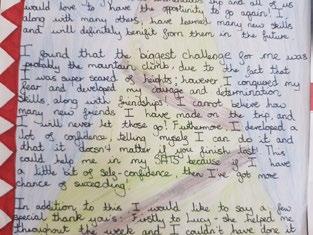 trip and all of us
would love to have the opportunity to go again! I
along with many others, have learned many new skills
and will definitely benefit from them in the future.
I found that the biggest challenge for me was
probably the mountain climb, due to the fact that
I was super scared of heights; however I conquered my
fear and developed my courage and determination
skills, along with friendships! I cannot believe how
many new friends I have made on the trip, and
I will never let those go! Futhermore, I developed a
lot of confidence, telling myself I can do it and
that it doesn't matter if you finish last! This
could help me in my SATS because if I have
a little bit of self-confidence then I've got more
chance of succeeding!
In addition to this I would like to say a few
special thank you's: Firstly to Lucy - she helped me
throughout the week and I couldn't have done it